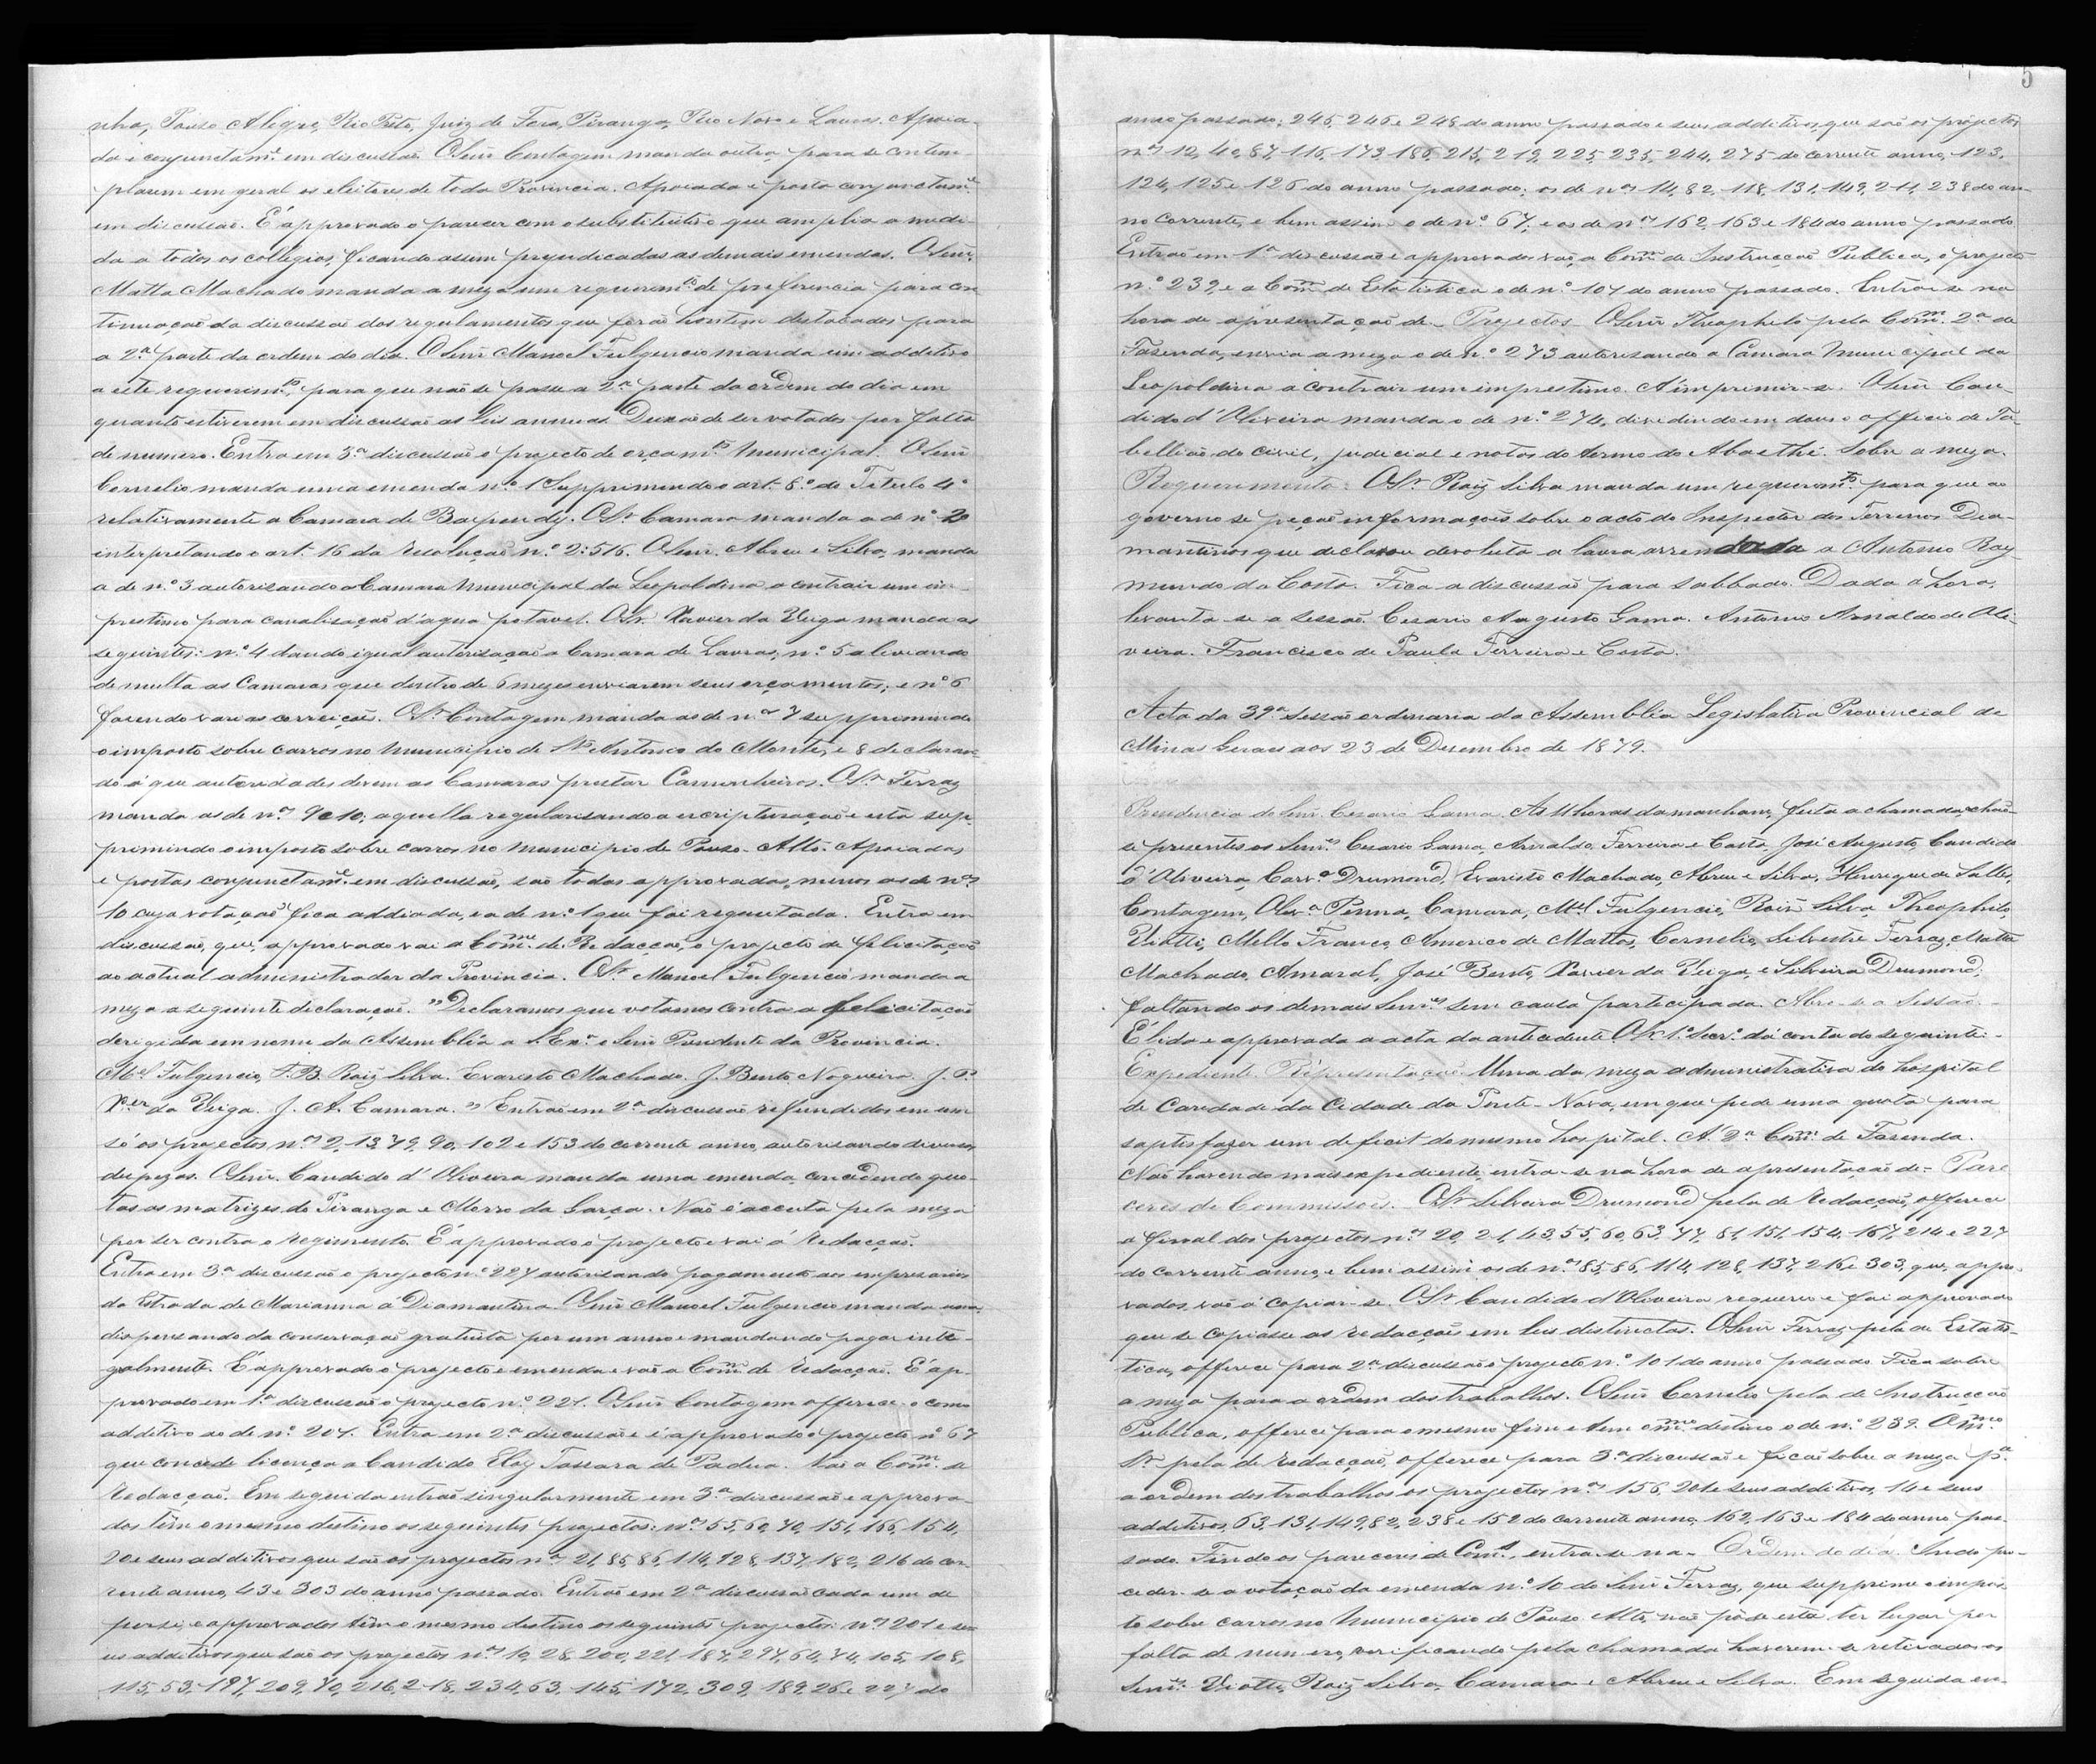 nha, Pouso Alegre, Rio Preto, Juiz de Fora, Piranga, Rio Novo e Lavras. Apoia-
da é conjunctamᵉ em discussão. O Senr Contagem manda outra, para se contem-
plarem em geral os eleitores de toda Provincia. Apoiada é posta conjunctamᵉ
em discussão. É approvado o parecer com o substitutivo que amplia a medi-
da a todos os collegios, ficando assim prejudicadas as demais emendas. O Senr
Matta Machado manda a meza um requerimᵗᵒ de preferencia para con-
tinuação da discussão dos regulamentos que forão hontem destacados para
a 2ª parte da ordem do dia. O Senr Manoel Fulgencio manda um additivo
a este requerimᵗᵒ, para que não se passe a 2ª parte da ordem do dia em
quanto estiverem em discussão as leis annuas. Deixão de ser votados por falta
de numero. Entra em 3ª discussão o projecto de orçamᵗᵒ Municipal. O Senr
Cornelio manda uma emenda nº 1 Supprimindo o art. 8º do Titulo 4º
relativamente a Camara de Baependy. O Sr Camara manda a de nº 2
interpretando o art. 16 da Resolução nº 2:516. O Senr Abreu e Silva, manda
a de nº 3 autorisando a Camara Municipal da Leopoldina a contrair um im-
prestimo para canalisação d'agua potavel. O Sr. Xavier da Veiga manda as
seguintes: nº 4 dando igual autorisação a Camara de Lavras, nº 5 aliviando
de multa as Camaras que dentro de 6 mezes enviarem seus orçamentos; e nº 6
fazendo varias correcções. O Sr Contagem manda as de nºs 7 supprimindo
o imposto sobre carros no Municipio de Stº Antonio do Monte, e 8 declaran-
do á que autoridades devem as Camaras prestar Camenheiros. O Sr Ferraz
manda as de nºs 9 e 10, aquella regularisando a escripturação e esta sup-
primindo o imposto sobre carros no Municipio de Pouso-Alto. Apoiadas
e postas conjunctamᵉ em discussão, são todas approvadas, menos as de nºs
10 cuja votação fica addiada, e a de nº 1 que foi regeitada. Entra em
discussão, que, approvado vai a Comm. de Redacção, o projecto de felicitação
ao actual administrador da Provincia. O Sr Manoel Fulgencio manda a
meza a seguinte declaração. "Declaramos que votamos contra a felicitação
derigida em nome da Assembléa a S. Exª o Senr Presidente da Provincia.
Mel Fulgencio, F. B. Roiz Silva. Evaristo Machado. J. Bento Nogueira. J. P.
Xer da Veiga. J. A. Camara." Entrão em 2ª discussão refundidos em um
só os projectos nºs 2, 13, 79, 90, 102 e 153 do corrente anno, autorisando diversas
despezas. O Senr. Candido d'Oliveira manda uma emenda, concedendo quo-
tas as matrizes do Piranga e Morro da Garça. Não é acceita pela meza
por ser contra o regimento. É approvado o projecto e vai á Redacção.
Entra em 3ª discussão o projecto nº 227 autorisando pagamento aos impresarios
da Estrada de Marianna a Diamantina. O Senr Manoel Fulgencio manda uma,
dispensando da conservação gratuita por um anno e mandando pagar inte-
gralmente. É approvado o projecto e emenda e vão a Comm de Redacção. É ap-
provado em 1ª discussão o projecto nº 221. O Senr Contagem offerece-o como
additivo ao de nº 201. Entra em 2ª discussão e é approvado o projecto nº 67
que concede licença a Candido Eloy Tassara de Padua. Vai a Comm. de
Redacção. Em seguida entrão singularmente em 3ª discussão e approva-
dos têm o mesmo destino os seguintes projectos: nºs 55, 60, 70, 151, 166, 154,
20 e seus additivos que são os projectos nºs 21, 85, 86, 114, 128, 137, 182, 216 do cor-
rente anno, 43 e 303 do anno passado. Entrão em 2ª discussão cada um de
per si, e approvados têm o mesmo destino os seguintes projectos: nºs 201 e seu
us additivos que são os projectos nºs 10, 28, 200, 221, 187, 297, 64, 74, 105, 108,
115, 53, 197, 209, 70, 216, 218, 234, 63, 145, 172, 309, 189, 26 e 227 do
5
anno passado; 245, 246 e 248 do anno passado e seus additivos, que são os projectos
nºs 12, 40, 87, 116, 173, 186, 215, 219, 225, 235, 244, 275 do corrente anno, 123,
124, 125 e 126 do anno passado; os de nºs 14, 82, 118, 131, 149, 211, 238 do an-
no corrente, e bem assim o de nº 67, e os de nºs 162, 163 e 184 do anno passado.
Entrão em 1ª discussão e approvados vão, a Comm de Instrucção Publica, o projecto
nº 239, e a Comm de Estatistica o de nº 101 do anno passado. Entra-se na
hora de apresentação de - Projectos - O Senr Theophilo pela Comm. 2ª de
Fazenda, envia a meza o de nº 273 autorisando a Câmara Municipal da
Leopoldina a contrair um imprestimo. A imprimir-se. O Senr Can-
dido d'Oliveira manda o de nº 274, dividindo em dous o officio de Ta-
bellião do civil, judicial e notas do termo do Abaethé. Sobre a meza.
Requerimento: O Sr. Roiz Silva manda um requerimᵗᵒ. para que ao
governo se peção informações sobre o acto do Inspector dos Terrenos Dia-
mantinos que declarou devoluta a lavra arrendada a Antonio Ray-
mundo da Costa. Fica a discussão para sabbado. Dada a hora,
levanta-se a sessão. Cesario Augusto Gama. Antonio Arnaldo de Oli-
veira. Francisco de Paula Ferreira e Costa.
Acta da 39ª Sessão ordinaria da Assembléa Legislativa Provincial de
Minas Geraes aos 23 de Desembro de 1879.
Presidencia do Senr. Cesario Gama. As 11 horas da manham, feita a chamada, achão-
se presentes os Senrs Cesario Gama, Arnaldo, Ferreira e Costa, José Augusto, Candido
d'Oliveira, Carvº Drumond, Evaristo Machado, Abreu e Silva, Henrique de Salles,
Contagem, Olivª Penna, Camara, Mel Fulgencio, Roiz Silva, Theophilo,
Viotti, Mello Franco, Americo de Mattos, Cornelio, Silvestre Ferraz, Matta
Machado, Amaral, José Bento, Xavier da Veiga, e Silveira Drumond;
faltando os demais Senrs sem causa participada. Abre-se a Sessão.
É lida e approvada a acta da antecedente. O Sr 1º Secrº dá conta do seguinte -
Expediente. Representação. Uma da meza administrativa do hospital
de Caridade da Cidade da Ponte-Nova, em que pede uma quota para
saptisfazer um deficit do mesmo hospital. A' 2ª Comm. de Fazenda.
Não havendo mais expediente, entra-se na hora de apresentação de - Pare
ceres de Commissões. O Sr Silveira Drumond pela de Redacção, offerece
a final dos projectos nºs 20, 21, 43, 55, 60, 63, 77, 81, 151, 154, 167, 214 e 227
do corrente anno, e bem assim os de nºs 85, 86, 114, 128, 137, 216 e 303, que, appro-
vados, vão á copiar-se. O Sr Candido d'Oliveira requereu e foi approvado
que se copiasse as redacções em leis distinctas. O Senr Ferraz pela de Estatis-
tica, offerece para 2ª discussão o projecto nº 101 do anno passado. Fica sobre
a meza para a ordem dos trabalhos. O Senr Cornelio pela de Instrucção
Publica, offerece para o mesmo fim e tem o mmo destino o de nº 239. O mmo
Sr. pela de Redacção, offerece para 3ª discussão e ficão sobre a meza pª
a ordem dos trabalhos os projectos nºs 156, 201 e seus additivos, 14 e seus
additivos, 63, 131, 149, 82, 238 e 152 do corrente anno, 162, 163 e 184 do anno pas-
sado. Findo os pareceres de Comms, entra-se na - Ordem do dia. Indo pro-
ceder-se a votação da emenda nº 10 do Senr Ferraz, que supprime o impos-
to sobre carros no Municipio de Pouso Alto, não pôde esta ter lugar por
falta de numero, verificando pela chamada haverem-se retirados os
Senrs. Viotti, Roiz Silva, Camara e Abreu e Silva. Em seguida en-